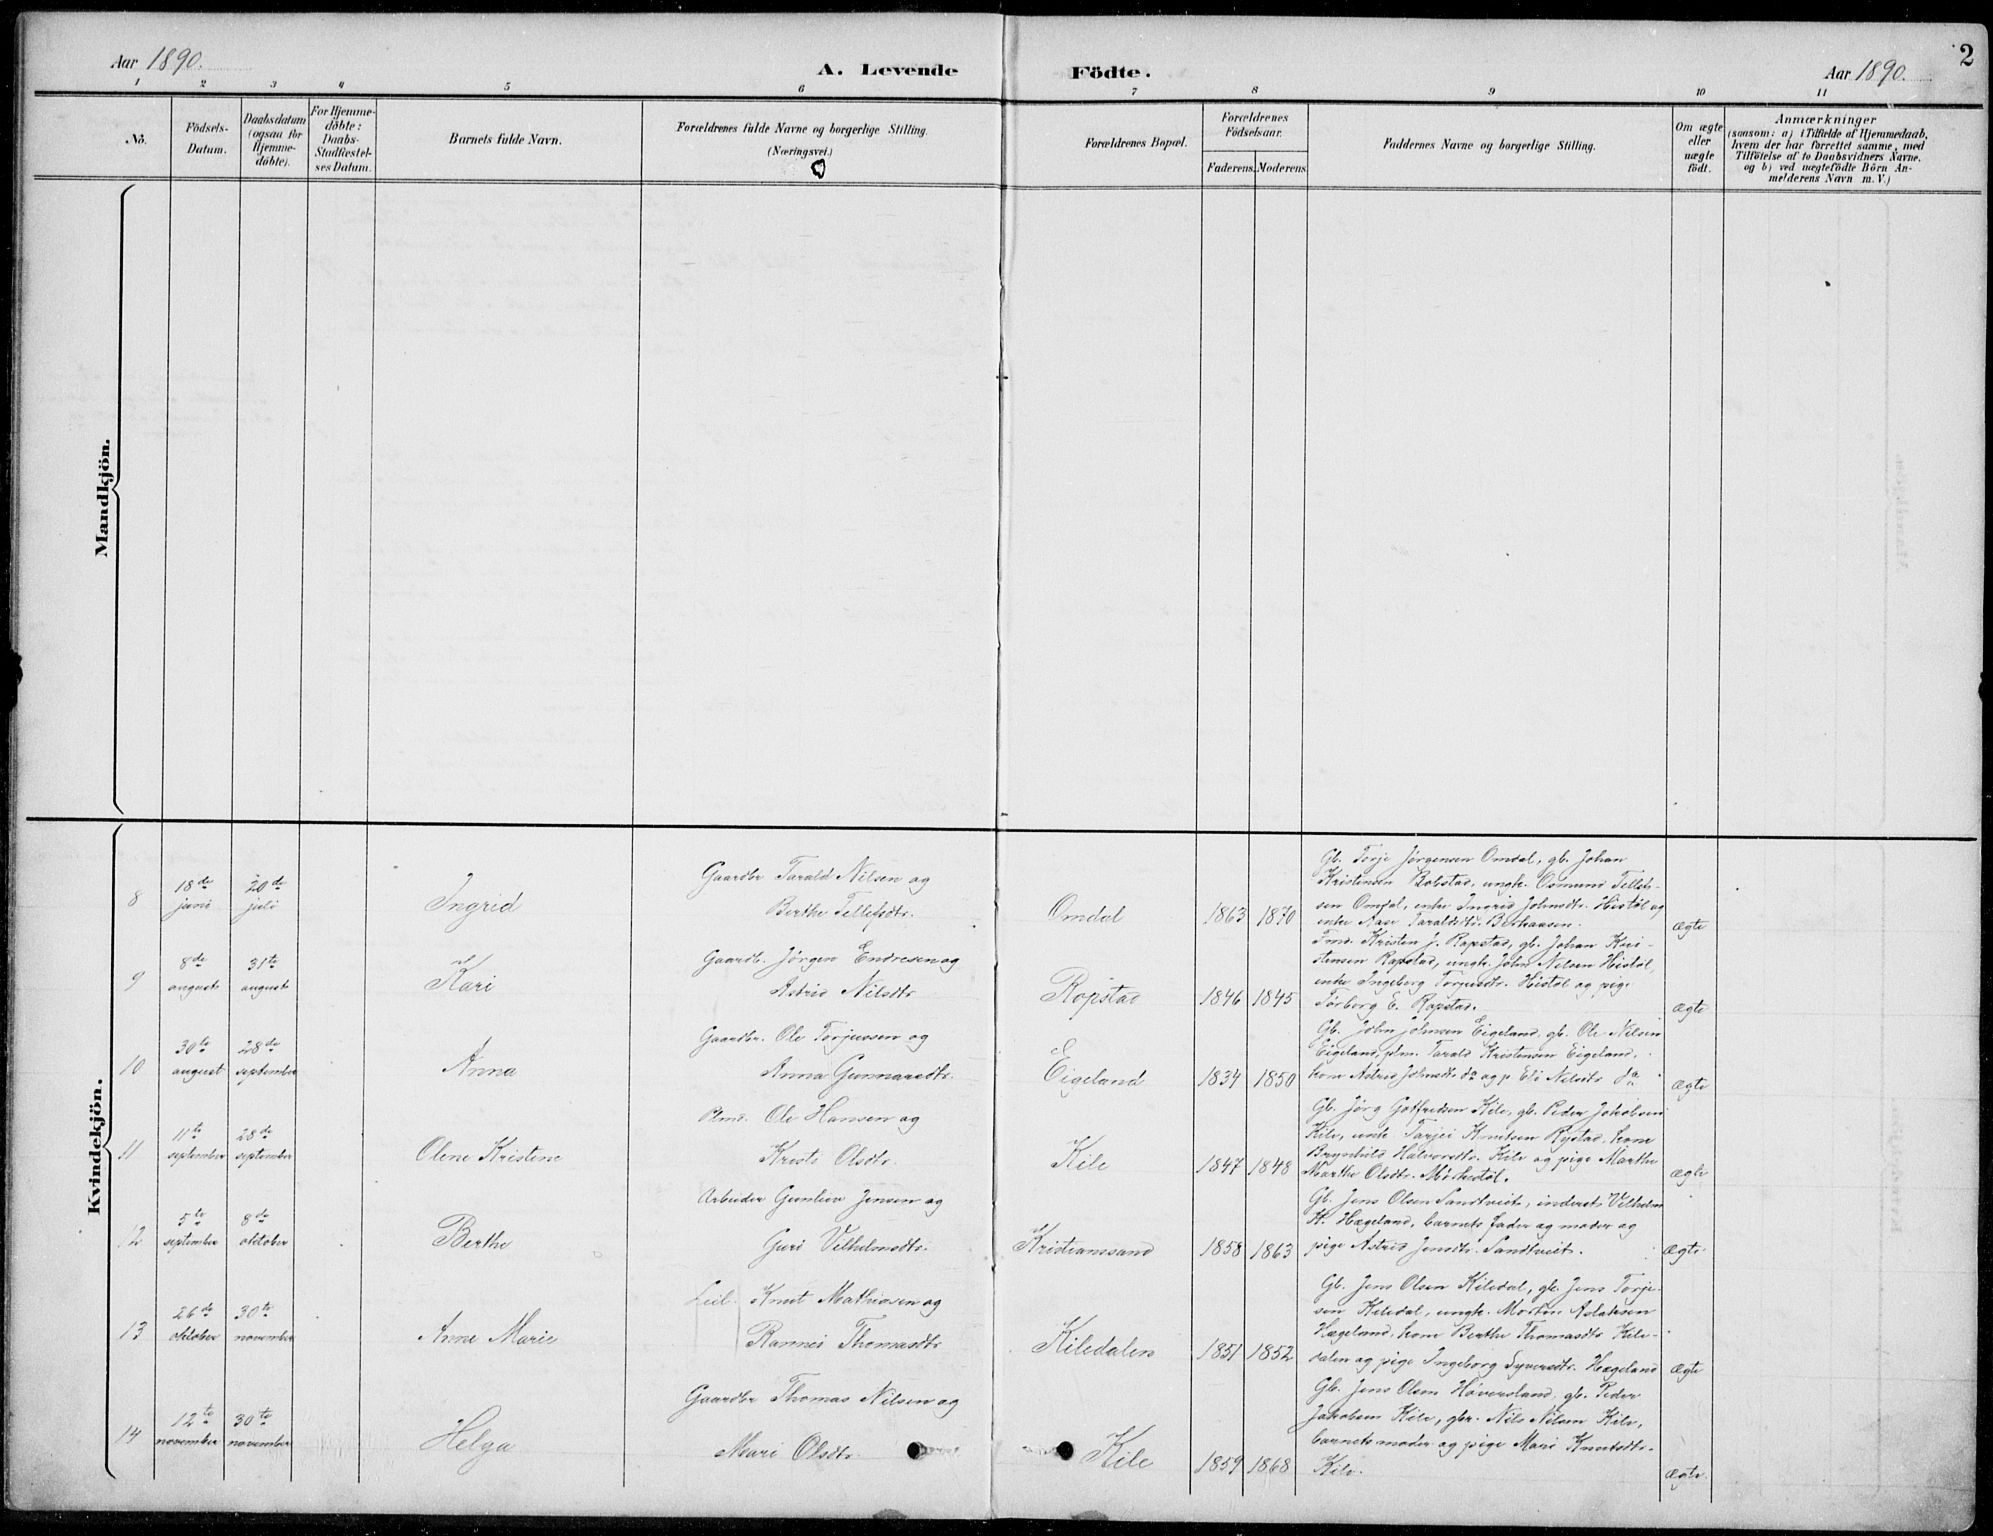 2
Aar 1890.
A. Levende Födte.
Aar 1890.
1 2 3 4 5 6 7 8 9 10 11
No.
Födsels-
Datum.
Daabsdatum
(ogsaa for
Hjemme-
döbte).
For Hjemme-
döbte:
Daabs-
Stadfæstel-
ses Datum.
Barnets fulde Navn.
Forældrenes fulde Navne og borgerlige Stilling.
(Næringsvei.)
Forældrenes Bopæl.
Forældrenes
Födselsaar.
Faderens. Moderens.
Faddernes Navne og borgerlige Stilling.
Om ægte
eller
uægte
födt.
Anmærkninger
(saasom: a) i Tilfælde af Hjemmedaab,
hvem der har forrettet samme, med
Tilföielse af to Daabsvidners Navne.
og b) ved uægtefödte Börn An-
melderens Navn m. V.)
Mandkjön.
Kvindekjön.
8
18de
juni
20de
juli
Ingrid
Gaardbr Tarald Nilsen og
Berthe Tellefsdtr.
Omdal
1863 1870
Gb. Torje Jørgensen Omdal, gb. Johan
Kristensen Robstad, ungk. Osmund Tellef-
sen Omdal, enke Ingrid Johnsdtr. Histøl og
enke Aase Taraldsdtr.
ægte
9
8de
august
31te
august
Kari
Gaardb. Jørgen Endresen og
Astrid Nilsdtr
Ropstad
1846 1845
Kristen J. Rapstad, gb. Johan Kri-
stensen Rapstad, ungk. John Nilsen Histøl,
enke Ingeborg Torjusdtr. Histøl og pige
Torborg E. Rapstad.
ægte
10
30te
august
28de
september
Anna
Gaardbr. Ole Torjussen og
Anna Gunnarsdtr.
Eigeland
1834 1850
Gb. John Johnsen Eigeland, gb. Ole Nilsen
Eigeland, plm. Tarald Kristensen Eigeland,
kone Astrid Johnsdtr. do og p. Eli Nilsdtr do
ægte
11
11te
september
28de
september
Olene Kristene
Plmd. Ole Hansen og
Kirsti Olsdtr.
Kile
1847 1848
Gb. Jørg Gotfredsen Kile, gb. Peder Jakobsen
Kile, Tarjei Knutsen Rystad, kone
Brynhild Halvorsdtr. Kile og pige Marthe
Marthe Olsdtr.
ægte
12
5te
september
8de
oktober
Berthe
Arbeider Gunluv Jensen og
Guri Vilhelmsdtr.
Kristianssand
1858 1863
Gb. Jens Olsen Sandtveit, inderst Vilhelm
K. Hægeland, barnets fader og moder og
pige Astrid Jensdtr. Sandtveit.
ægte
13
26de
oktober
30te
november
Anne Marie
Leil. Knut Mathiasen og
Rannei Thomasdtr
Kiledalen
1851 1852
Gb. Jens Olsen Kiledal, gb. Jens Torje-
sen Kiledal, ungk. Martin Aslaksen
Hægeland, kone Berthe Thomasdtr Kile-
dalen og pige Ingeborg Syversdtr. Hægeland
ægte
14
12te
november
30te
november
Helga
Gaardbr Thomas Nilsen og
Mari Olsdtr.
Kile
1859 1868
Gb. Jens Olsen Høversland, gb. Peder
Jakobsen Kile, gbr. Nils Nilsen Kile,
barnets moder og pige Mari Knutsdtr.
Kile.
ægte.